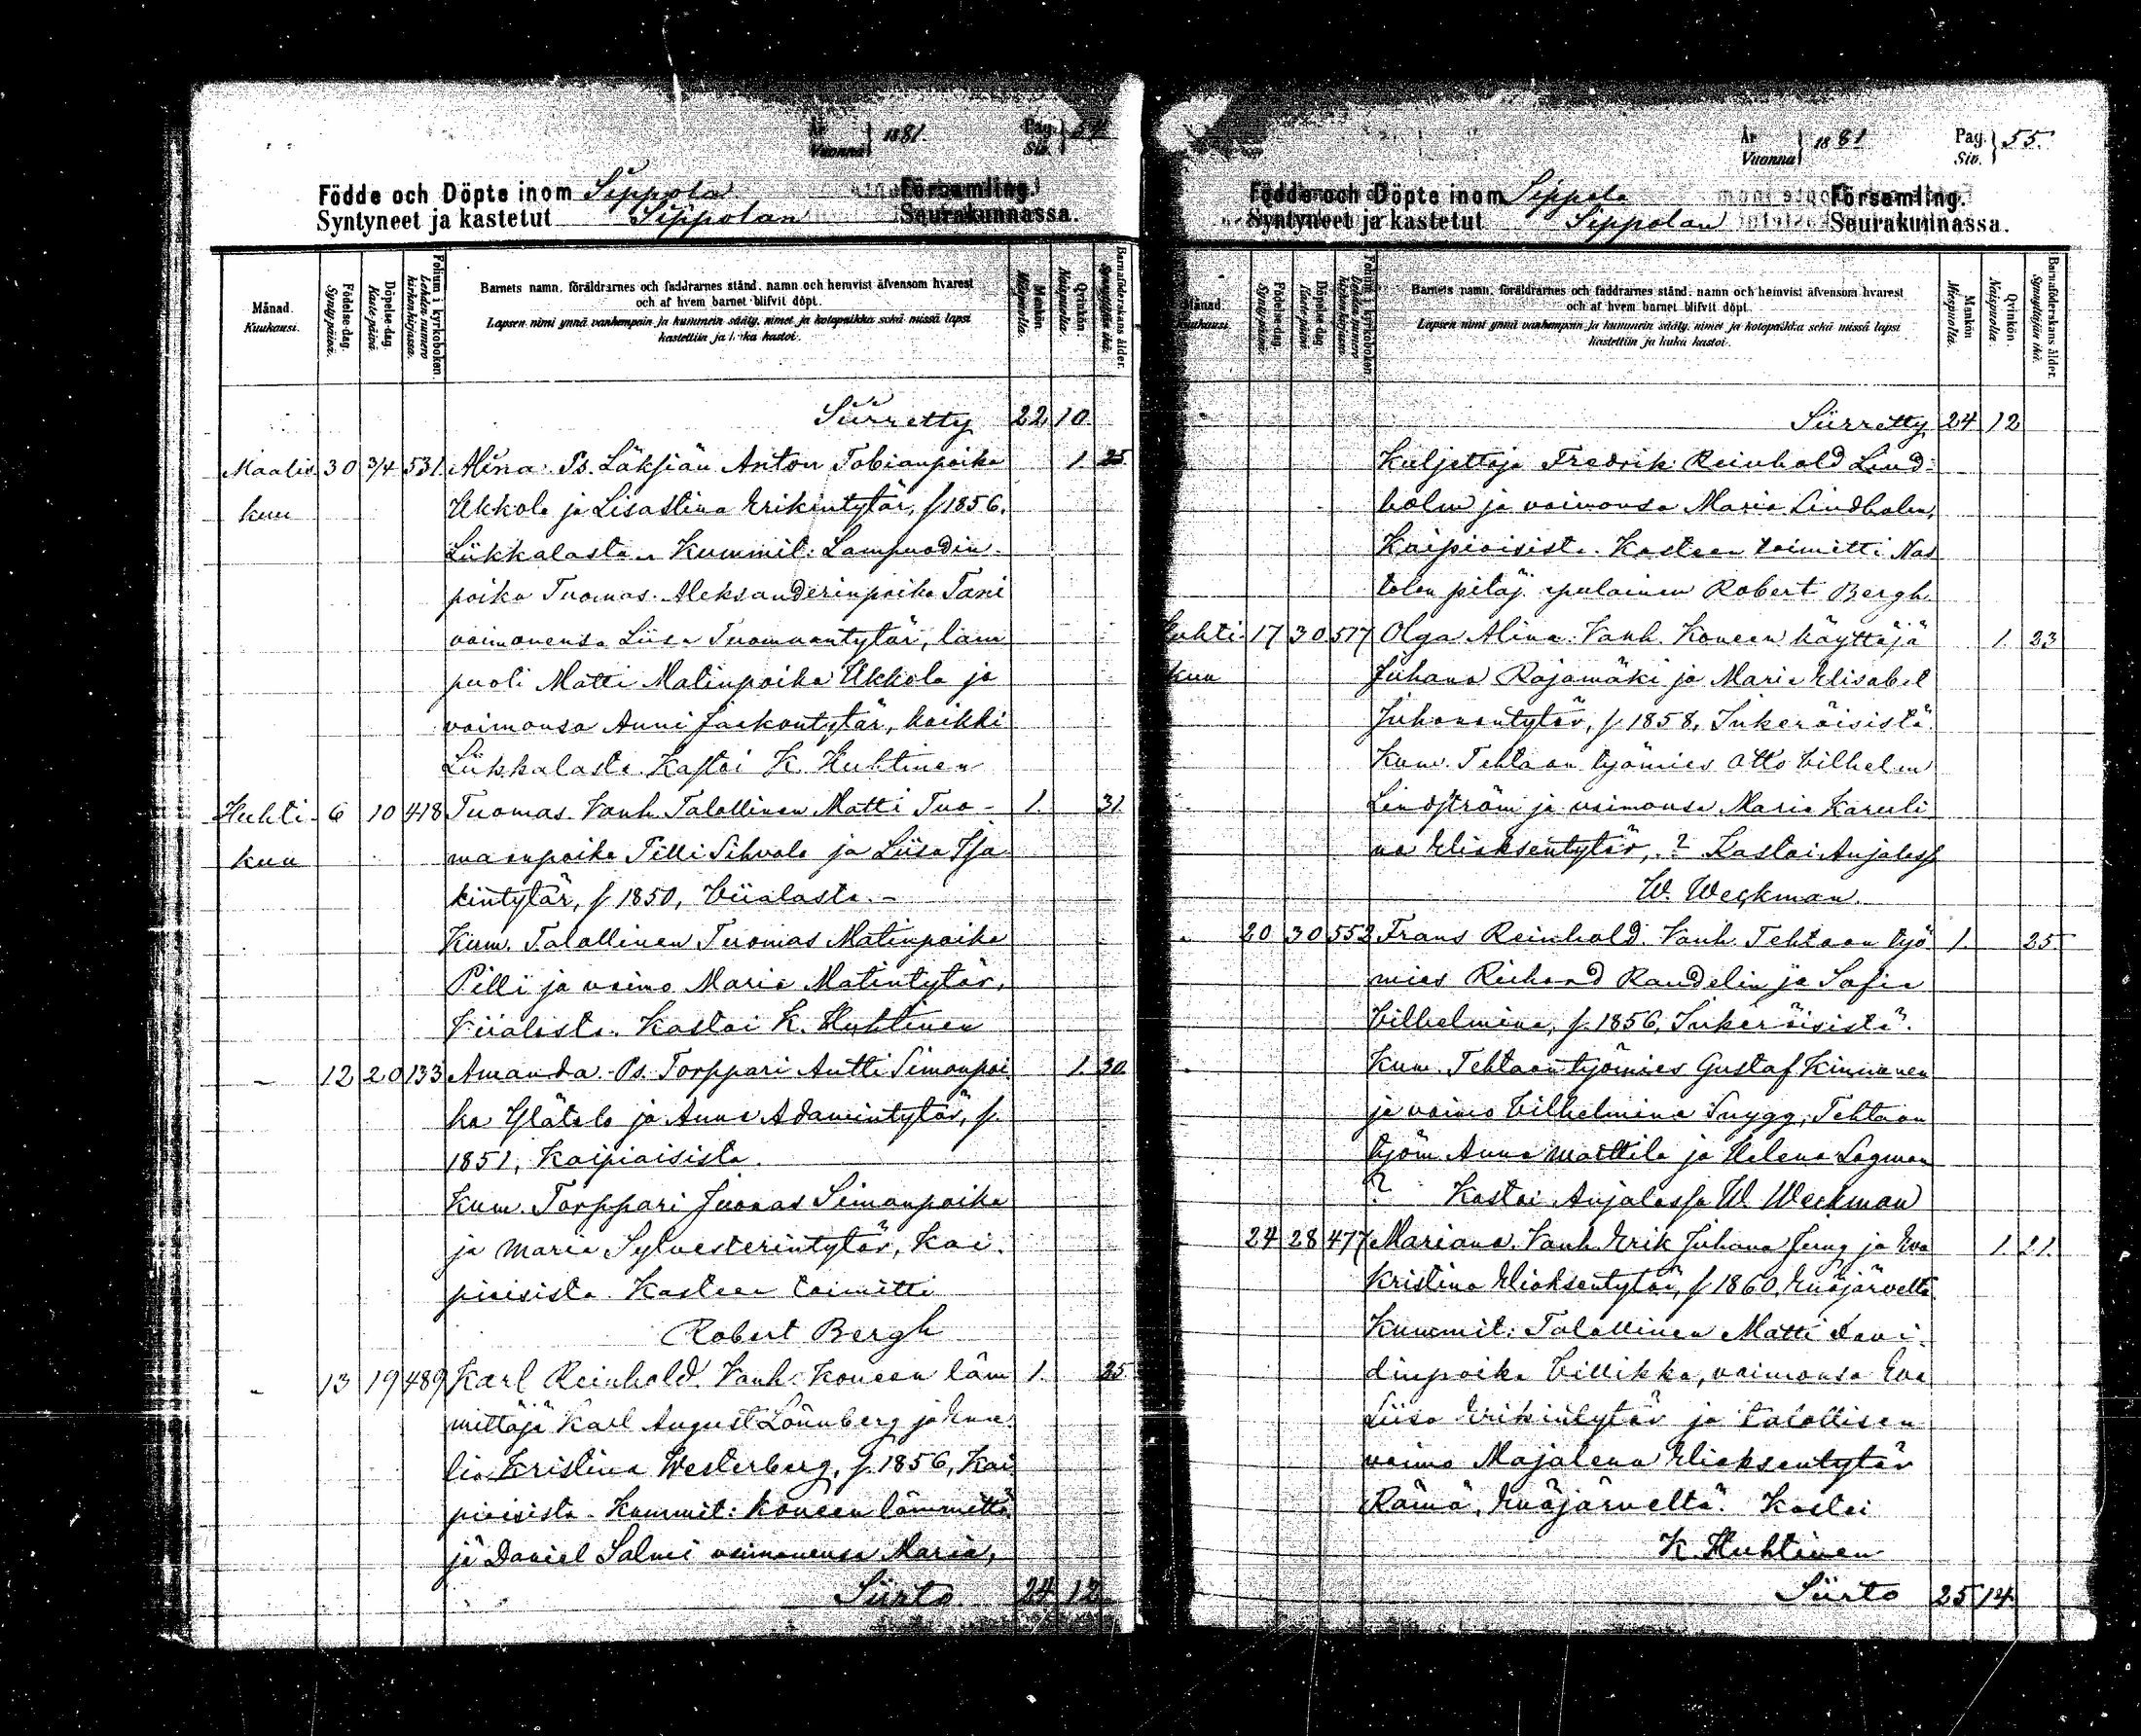 År
Vuonna } 1881.
Pag.
Siv. } 54
Födde och Döpte inom Sippola Församling.
Syntyneet ja kastetut Sippolan Seurakunnassa.
Månad.
Kuukausi.
Födelse-dag.
Synty-päivä.
Döpelse-dag.
Kaste-päivä
Folium i kyrkoboken.
Lehden numero kirkonkirjassa.
Barnets namn, föräldrarnes och faddrarnes stånd, namn och hemvist äfvensom hvarest
och af hvem barnet blifvit döpt.
Lapsen nimi ynnä vanhempain ja kummein sääty, nimet ja kotopaikka sekä missä lapsi
kastettiin ja kuka kastoi.
Mankön.
Miespuolia.
Qvinkön.
Naispuolia.
Barnaföderskans ålder.
Synnyttäjän ikä.
Siirretty 22 10
Maalis 30 3/4 531. Alina. Ps. Läksiän Anton Tobianpoika 1. 25
kuu Ukkola ja Lisastina Erikintytär, f 1856.
Liikkalasta. Kummit: Lampuodin-
poika Tuomas Aleksanderinpoika Tani
vaimonensa Liisa Tuomaantytär, lam
puoti Matti Matinpoika Ukkola ja
vaimonsa Anni Jaakontytär, kaikki
Liikkalasta. Kastoi K. Huhtinen
Huhti- 6 10 418 Tuomas. Vanh. Talollinen Matti Tuo- 1. 31.
kuu maanpoika Pilli Sihvola ja Liisa Isa
kintytär, f 1850, Viialasta. -
Kum. Talollinen Tuomas Matinpoika
Pilli ja vaimo Maria Matintytär,
Viialasta. Kastoi K. Huhtinen
- 12 20 133 Amanda. Ps. Torppari Antti Simonpoi 1. 30.
ka Ylätalo ja Anna Adamintytär, f.
1851, Kaipiaisista.
Kum. Torppari Juonas Simonpoika
ja Maria Sylvesterintytär, Kai-
piaisista. Kasteen toimitti
Robert Bergh
- 13 19 489 Karl Reinhold. Vanh. Koneen läm 1. 25
mittäjä Karl August Lönnberg ja Ama
lia Kristina Westerberg, f. 1856, Kai
piaisista. Kummit: koneen lämmittä
jä Daniel Salmi vaimonensa Maria,
Siirto 24 12
År
Vuonna } 1881
Pag.
Siv. } 55.
Födde och Döpte inom Sippola Församling.
Syntyneet ja kastetut Sippolan Seurakunnassa.
Månad.
Kuukausi.
Födelse-dag.
Synty-päivä.
Döpelse-dag.
Kaste-päivä
Folium i kyrkoboken.
Lehden numero kirkonkirjassa.
Barnets namn, föräldrarnes och faddrarnes stånd, namn och heimvist äfvensom hvarest
och af hvem barnet blifvit döpt.
Lapsen nimi ynnä vanhempain ja kummein sääty, nimet ja kotopaikka sekä missä lapsi
kastettiin ja kuka kastoi.
Mankön
Miespuolia.
Qvinkön.
Naispuolia.
Barnaföderskans ålder.
Synnyttäjän ikä.
Siirretty 24 12
Kuljettaja Fredrik Reinhold Lind-
holm ja vaimonsa Maria Lindholm,
Kaipiaisista. Kasteen toimitti Nas
tolan pitäj. apulainen Robert Bergh.
Huhti- 17 30 517 Olga Alina. Vanh. Koneen käyttäjä 1. 23
kuu Juhana Rajamäki ja Maria Elisabet
Juhanantytär, f 1858, Inkeröisistä.
Kum. Tehtaan työmies Otto Vilhelm
Lindström ja vaimonsa Maria Karuli
na Eliaksentytär, ? Kastoi Anjalassa
W. Weckman.
- 20 30 552 Frans Reinhold. Vanh. Tehtaan työ 1. 25
mies Richard Randelin ja Sofia
Vilhelmina, f. 1856, Inkeröisistä.
Kum. Tehtaan työmies Gustaf Kinnunen
ja vaimo Vilhelmina Snygg, Tehtaan
työm. Anna Marttila ja Helena Lagman
? Kastoi Anjalassa W. Weckman
24 28 477 Mariana. Vanh. Erik Juhana Jung ja Eva 1. 21.
Kristina Eliaksentytär, f 1860, Enäjärveltä
Kummit: Talollinen Matti Davi-
dinpoika Villikka, vaimonsa Eva
Liisa Erikintytär ja talollisen
vaimo Majalena Eliaksentytär
Rämä, Enäjärveltä. Kastoi
K. Huhtinen
Siirto 25 14.